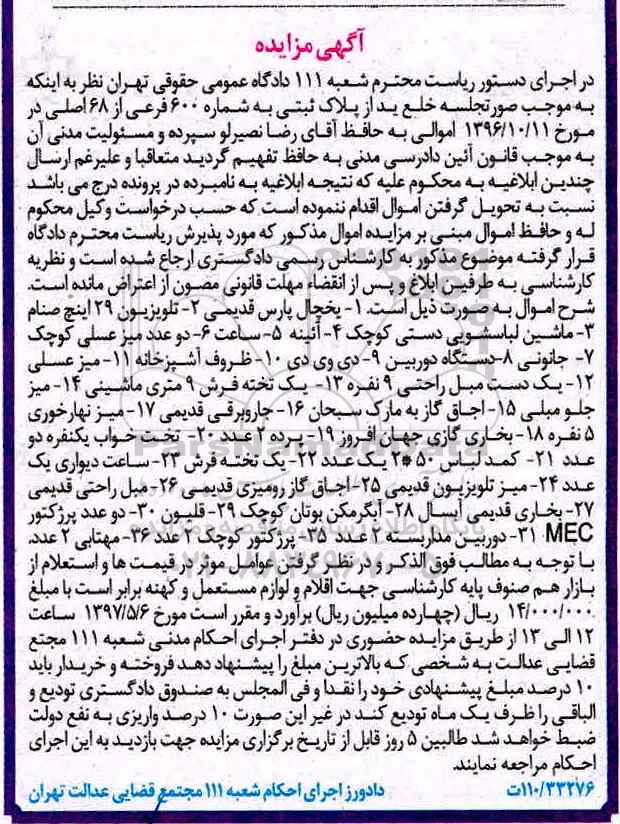 آگهی مزایده
در اجرای دستور ریاست محترم شعبه ۱۱۱ دادگاه عمومی حقوقی تهران نظر به اینکه
به موجب صورتجلسه خلع ید از پلاک ثبتی به شماره ۶۰۰ فرعی از ۶۸ اصلی در
مورخ ۱۳۹۶/۱۰/۱۱ اموالی به حافظ آقای رضا نصیرلو سپرده و مسئولیت مدنی آن
به موجب قانون آئین دادرسی مدنی به حافظ تفهیم گردید متعاقبا و علیرغم ارسال
چندین ابلاغیه به محکوم علیه که نتیجه ابلاغیه به نامبرده در پرونده درج می باشد
نسبت به تحویل گرفتن اموال اقدام ننموده است که حسب درخواست وکیل محکوم
له و حافظ اموال مبنی بر مزایده اموال مذکور که مورد پذیرش ریاست محترم دادگاه
قرار گرفته موضوع مذکور به کارشناس رسمی دادگستری ارجاع شده است و نظریه
کارشناسی به طرفین ابلاغ و پس از انقضاء مهلت قانونی مصون از اعتراض مانده است.
شرح اموال به صورت ذیل است. ۱- یخچال پارس قدیمی ۲- تلویزیون ۲۹ اینچ صنام
۳- ماشین لباسشویی دستی کوچک ۴- آئینه ۵- ساعت ۶- دو عدد میز عسلی کوچک
۷- جانونی ۸-دستگاه دوربین ۹- دی وی دی ۱۰- ظروف آشپزخانه ۱۱- میز عسلی
۱۲- یک دست مبل راحتی ۹ نفره ۱۳- یک تخته فرش ۹ متری ماشینی ۱۴- میز
جلو مبلی ۱۵- اجاق گاز به مارک سبحان ۱۶- جاروبرقی قدیمی ۱۷- میز نهارخوری
۵ نفره ۱۸- بخاری گازی جهان افروز ۱۹- پرده ۲ عدد ۲۰- تخت خواب یکنفره دو
عدد ۲۱- کمد لباس ۵۰*۲ یک عدد ۲۲- یک تخته فرش ۲۳- ساعت دیواری یک
عدد ۲۴- میز تلویزیون قدیمی ۲۵-اجاق گاز رومیزی قدیمی ۲۶- مبل راحتی قدیمی
۲۷- بخاری قدیمی آبسال ۲۸- آبگرمکن بوتان کوچک ۲۹- قلیون ۳۰- دو عدد پرژکتور
MEC ۳۱- دوربین مداربسته ۲ عدد ۳۵- پرژکتور کوچک ۲ عدد ۳۶- مهتابی ۲ عدد.
با توجه به مطالب فوق الذکر و در نظر گرفتن عوامل موثر در قیمت ها و استعلام از
بازار هم صنوف پایه کارشناسی جهت اقلام و لوازم مستعمل و کهنه برابر است با مبلغ
۱۴/۰۰۰/۰۰۰ ریال (چهارده میلیون ریال) برآورد و مقرر است مورخ ۱۳۹۷/۵/۶ ساعت
۱۲ الی ۱۳ از طریق مزایده حضوری در دفتر اجرای احکام مدنی شعبه ۱۱۱ مجتع
قضایی عدالت به شخصی که بالاترین مبلغ را پیشنهاد دهد فروخته و خریدار باید
۱۰ درصد مبلغ پیشنهادی خود را نقدا و فی المجلس به صندوق دادگستری تودیع و
الباقی را ظرف یک ماه تودیع کند در غیر این صورت ۱۰ درصد واریزی به نفع دولت
ضبط خواهد شد طالبین ۵ روز قابل از تاریخ برگزاری مزایده جهت بازدید به این اجرای
احکام مراجعه نمایند.
۱۱۰/۳۳۲۷۶ت دادورز اجرای احکام شعبه ۱۱۱ مجتمع قضایی عدالت تهران